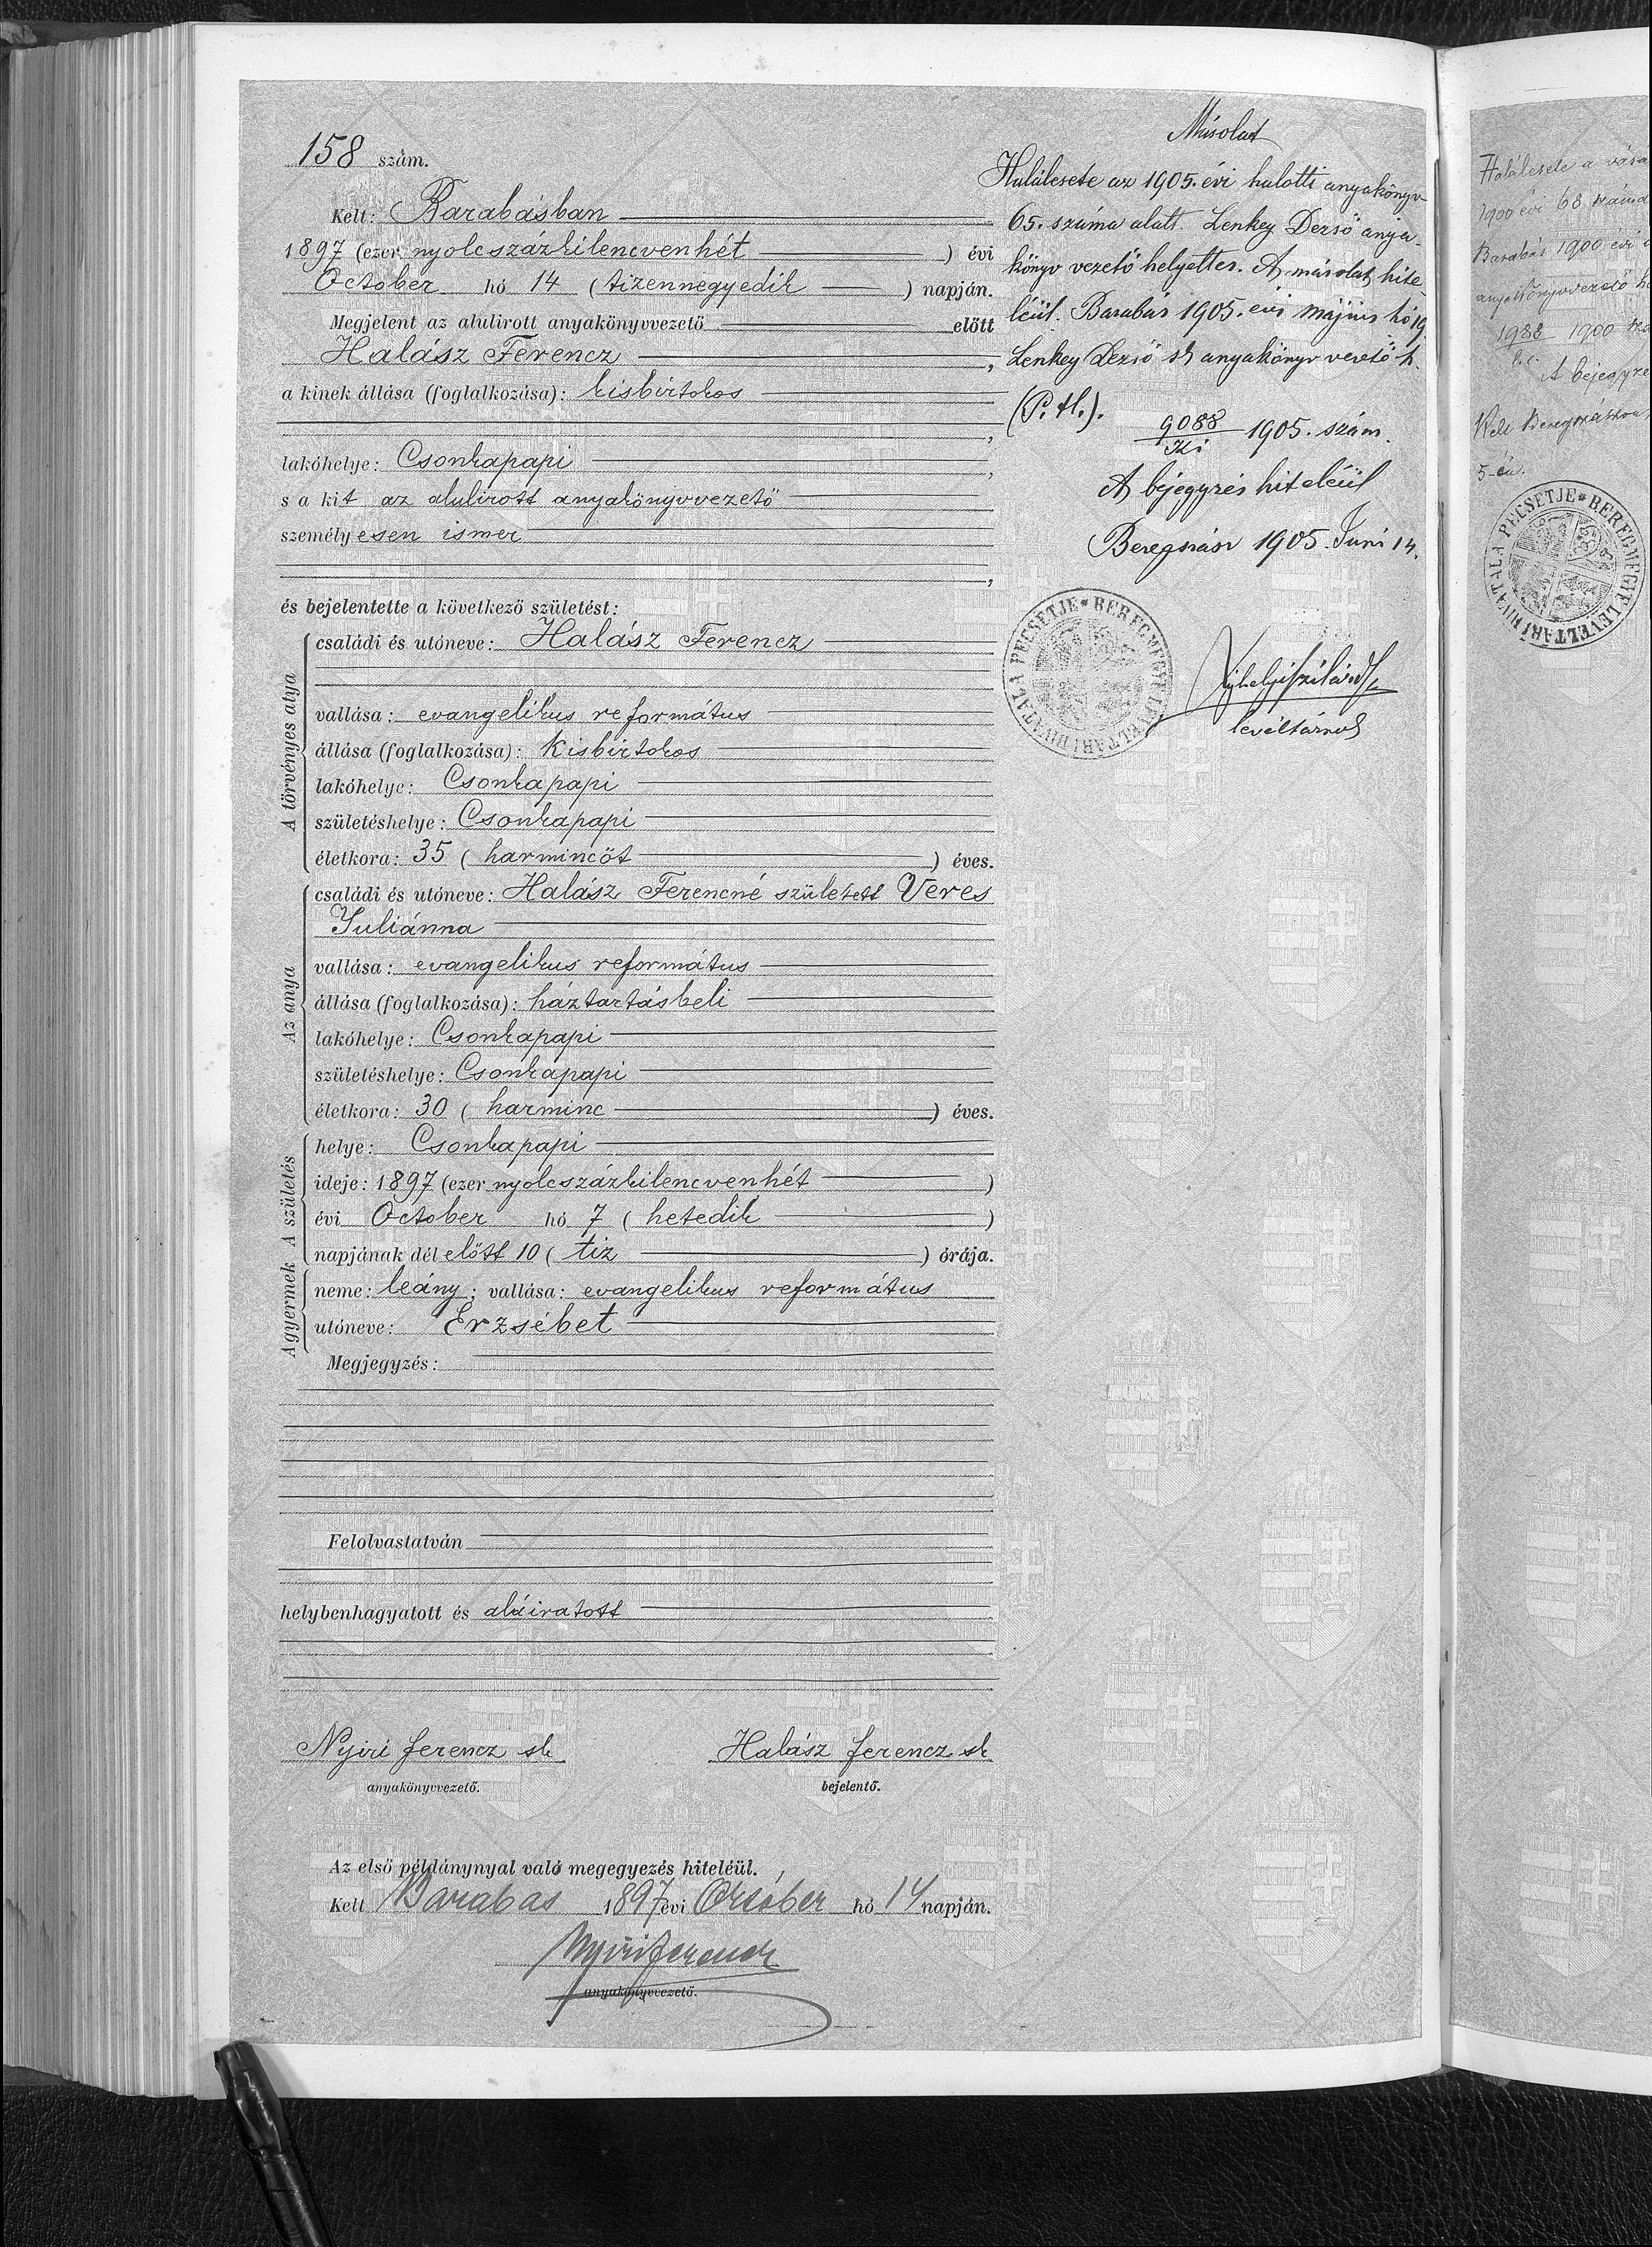 158 szám.
Kelt: Barabásban
1897 (ezer nyolcszázkilencvenhét) évi
October hó 14 (tizennegyedik) napján.
Megjelent az alulirott anyakönyvvezető előtt
Halász Ferencz,
a kinek állása (foglalkozása): kisbirtokos
,
lakóhelye: Csonkapapi,
s a kit az alulirott anyakönyvvezető
személyesen ismer
,
és bejelentette a következő születést:
A törvényes atya
családi és utóneve: Halász Ferencz
vallása: evangelikus református
állása (foglalkozása): kisbirtokos
lakóhelye: Csonkapapi
születéshelye: Csonkapapi
életkora: 35 (harmincöt) éves.
Az anya
családi és utóneve: Halász Ferencné született Veres
Juliánna
vallása: evangelikus református
állása (foglalkozása): háztartásbeli
lakóhelye: Csonkapapi
születéshelye: Csonkapapi
életkora: 30 (harminc) éves.
A születés
helye: Csonkapapi
ideje: 1897 (ezer nyolcszázkilencvenhét)
évi October hó 7 (hetedik)
napjának dél előtt 10 (tiz) órája.
A gyermek
neme: leány; vallása: evangelikus református
utóneve: Erzsébet
Megjegyzés:
Felolvastatván
helybenhagyatott és aláiratott
Nyiri Ferencz sk
anyakönyvvezető.
Halász Ferencz sk
bejelentő.
Az első példánynyal való megegyezés hiteléül.
Kelt Barabás 1897 évi Október hó 14 napján.
Nyiri Ferencz
anyakönyvvezető.
Másolat
Halálesete az 1905. évi halotti anyakönyv
65. száma alatt. Lenkey Dezső anya-
könyv vezető helyettes. A másolat hite-
léül. Barabás 1905. évi május hó 19.
Lenkey Dezső sk anyakönyv vezető h.
(P. H.).
9088
1905. szám.
A bejegyzés hiteléül
Beregszász 1905. Juni 14.
BEREGMEGYE LEVÉLTÁRI HIVATALA PECSÉTJE
levéltárnok
Halálesete a
1900 évi 68
Barabás 1900 évi
1988 1900
A bejegyzé
Kelt Beregszászon
5-én.
BEREGMEGYE LEVÉLTÁRI HIVATALA PECSÉTJE